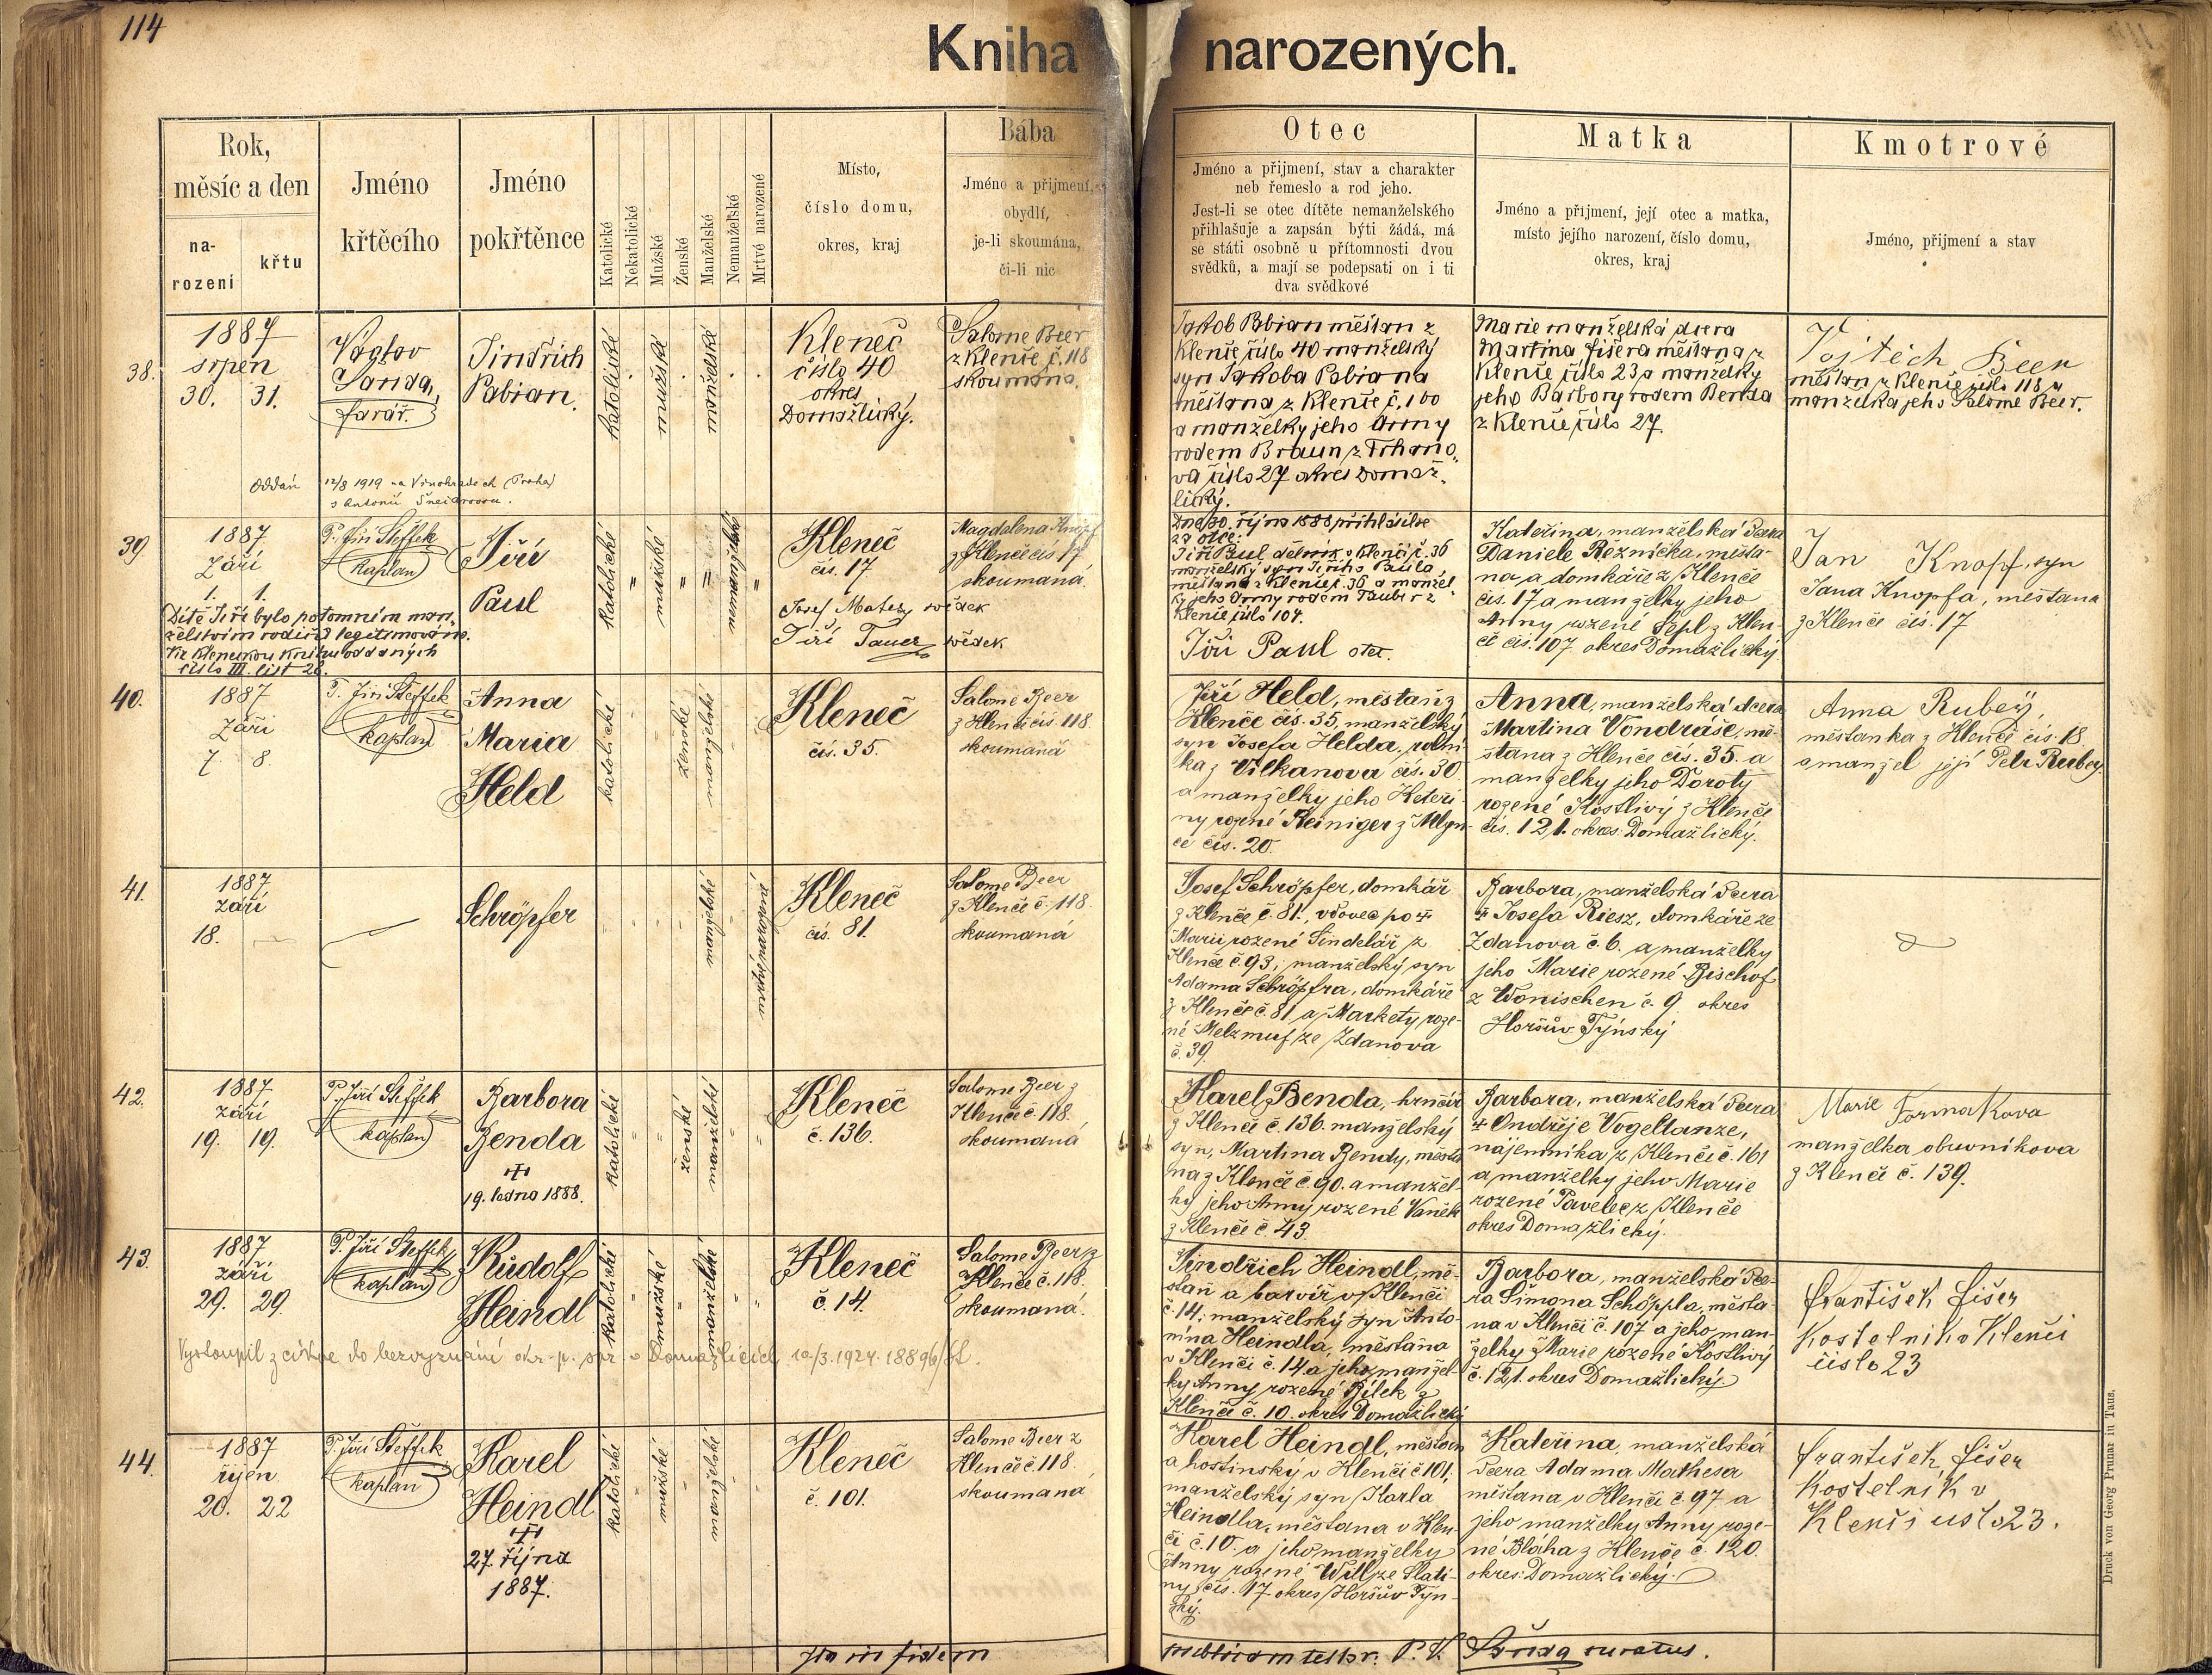 114
Kniha narozených.
Rok,
měsíc a den
na-
rozeni
křtu
Jméno
křtěcího
Jméno
pokřtěnce
Katolické
Nekatolické
Mužské
Ženské
Manželské
Nemanželské
Mrtvé narozené
Místo,
číslo domu,
okres, kraj
Bába
Jméno a přijmení,
obydlí,
je-li skoumána,
či-li nic
Otec
Jméno a přijmení, stav a charakter
neb řemeslo a rod jeho.
Jest-li se otec dítěte nemanželského
přihlašuje a zapsán býti žádá, má
se státi osobně u přítomnosti dvou
svědků, a mají se podepsati on i ti
dva svědkové
Matka
Jméno a přijmení, její otec a matka,
místo jejího narození, číslo domu,
okres, kraj
Kmotrové
Jméno, přijmení a stav
38.
1887
srpen
30. 31.
Václav
Šanda,
farář.
Jindřich
Pabian.
katolické
mužské
manželské
Kleneč
číslo 40
okres
Domažlický.
Salome Beer
z Klenče č. 118
skoumána.
Jakob Pabian měšťan z
Klenče číslo 40 manželský
syn Jakoba Pabiana
měšťana z Klenče č. 100
a manželky jeho Anny
rodem Braun z Trhano-
va číslo 27 okres Domaž-
lický.
Marie manželská dcera
Martina Fišera měšťana z
Klenče číslo 23 a manželky
jeho Barbory rodem Benda
z Klenče číslo 27.
Vojtěch Beer
měšťan z Klenče číslo 118 a
manželka jeho Salome Beer.
oddán 12/8 1919 na Vinohradech (Praha)
s Antonií
39.
1887.
Září
1. 1.
P. Jiří Steffek
kaplan
Jiří
Paul
katolické
mužské
nemanželské
Kleneč
čis. 17
Josef Matey svědek
Jiří Tauer svědek
Magdalena Knopf
z Klenče čis 17
skoumaná.
Dítě Jiří bylo potomním man-
želstvím rodičů legitimováno.
Viz klenečskou knihu oddaných
číslo III. list 28.
Dne 30. října 1888 přihlásil se
za otce:
Jiří Paul dělník v Klenči č. 36
manželský syn Jiřího Paula,
měšťana z Klenče č. 36 a manžel-
ky jeho Anny rodem Tauber z
Klenče číslo 104.
Jiří Paul otec.
Kateřina, manželská dcera
Daniele Řezníčka, měšťa-
na a domkáře z Klenče
čis. 17 a manželky jeho
Anny rozené Sepl z Klen-
če čis. 107 okres Domažlický.
Jan Knopf, syn
Jana Knopfa, měšťana
z Klenče čis. 17
40.
1887
Září
7. 8.
P. Jiří Steffek
kaplan
Anna
Maria
Held
katolické
ženské
manželské
Kleneč
čis. 35.
Salome Beer
z Klenče čis. 118
skoumaná
Jiří Held, měšťan z
Klenče čis. 35, manželský
syn Josefa Helda, rolní-
ka z Vilkanova čis. 30
a manželky jeho Kateři-
ny rozené Reiniger z Mlýn-
ce čis. 20.
Anna, manželská dcera
Martina Vondráše, mě-
šťana z Klenče čis. 35. a
manželky jeho Doroty
rozené Kostlivý z Klenče
čis. 121. okres Domažlický.
Anna Rubey,
měšťanka z Klenče čis. 18.
a manžel její Petr Rubey.
41.
1887
září
18.
Schröpfer
manželské
mrtvě narozené
Kleneč
čis. 81.
Salome Beer
z Klenče č. 118.
skoumaná
Josef Schröpfer, domkář
z Klenče č. 81., vdovec po †
Marii rozené Šindelář z
Klenče č. 93; manželský syn
Adama Schröpfra, domkáře
z Klenče č. 81 a Markety roze-
né Melzmuf ze Ždanova
č. 39.
Barbora, manželská dcera
† Josefa Riesz, domkáře ze
Ždanova č. 6. a manželky
jeho Marie rozené Bischof
z Wonischen č. 9. okres
Horšův Týnský
42.
1887.
září
19. 19.
P. Jiří Steffek
kaplan
Barbora
Benda
†
19. ledna 1888.
katolické
ženské
manželské
Kleneč
č. 136.
Salome Beer z
Klenče č. 118.
skoumaná
Karel Benda, hrnčíř
z Klenče č. 136. manželský
syn, Martina Bendy, měšťa
na z Klenče č. 90. a manžel-
ky jeho Anny rozené Vaněk
z Klenče č. 43.
Barbora, manželská dcera
† Ondřeje Vogeltanze,
nájemníka z Klenče č. 161
a manželky jeho Marie
rozené Pavelec z Klenče
okres Domažlický.
Marie Formakova
manželka obuvníkova
z Klenče č. 139.
43.
1887.
září
29. 29.
P. Jiří Steffek
kaplan
Rudolf
Heindl
katolické
mužské
manželské
Kleneč
č. 14.
Salome Beer z
Klenče č. 118.
skoumaná.
Vystoupil z církve do bezvyznání okr. p. spr. v Domažlicích 10./3. 1924. 18896/
Jindřich Heindl, mě-
šťan a barvíř v Klenči
č. 14; manželský syn Anto-
nína Heindla, měšťana
v Klenči č. 14. a jeho manžel-
ky Anny rozené Bílek z
Klenče č. 10. okres Domažlický
Barbora, manželská dce-
ra Šimona Schöppla, měšťa-
na v Klenči č. 107 a jeho man-
želky Marie rozené Kostlivý
č. 121. okres Domažlický.
František Fišer
Kostelnik v Klenči
čislo 23
44.
1887
říjen
20. 22
P. Jiří Steffek
kaplan
Karel
Heindl
†
27. října
1887.
katolické
mužské
manželské
Kleneč
č. 101.
Salome Beer z
Klenče č. 118.
skoumaná
Karel Heindl, měšťan
a hostinský v Klenči č. 101;
manželský syn Karla
Heindla, měšťana v Klen-
či č. 10. a jeho manželky
Anny rozené Will ze Slati-
ny čis. 17. okres Horšův Týn-
ský.
Kateřina, manželská
dcera Adama Mathesa
měšťana v Klenči č. 97 a
jeho manželky Anny roze-
né Bláha z Klenče č. 120.
okres Domažlický.
František Fišer
Kostelník v
Klenči čislo 23.
In in fidem publicam testor. P. V. Šanda curatus.
Druck von Georg Prunar in Taus.